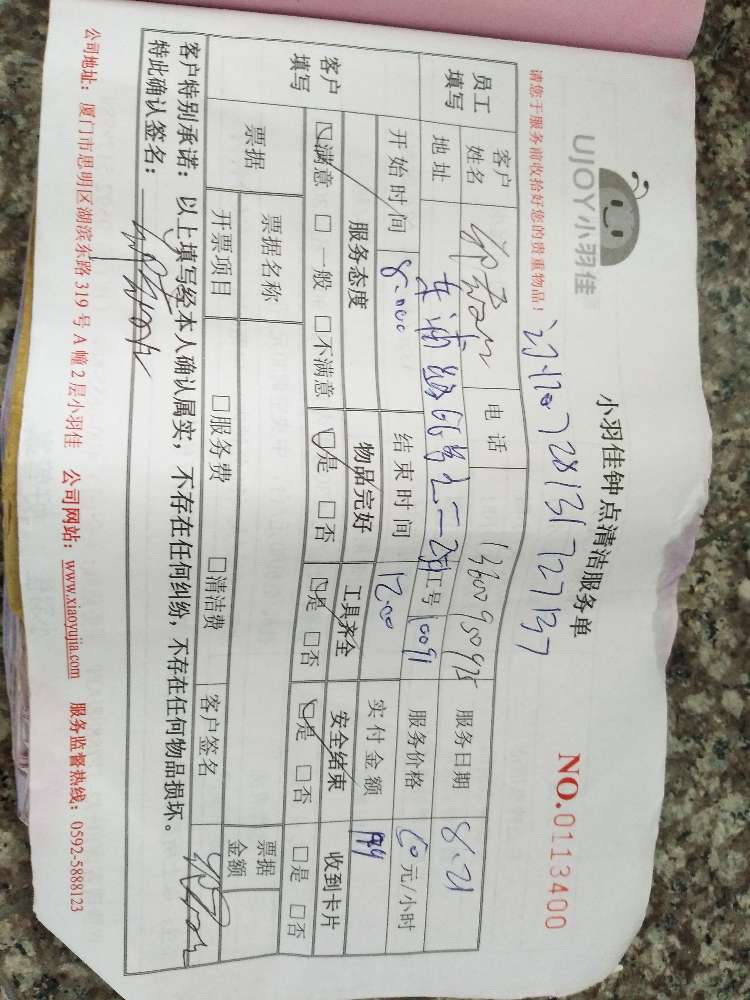 UJOY小羽佳
小羽佳钟点清洁服务单
NO.0113400
请您于服务前收拾好您的贵重物品！
员工填写 客户姓名 电话 服务日期 8.21
地址 工号 10091 服务价格 元/小时
开始时间 结束时间 12.00 实付金额
客户填写 服务态度 物品完好 工具齐全 安全结束 收到卡片
☑满意 □一般 □不满意 ☑是 □否 ☑是 □否 ☑是 □否 □是 □否
票据 票据名称 票据金额
开票项目 □服务费 □清洁费 客户签名
客户特别承诺：以上填写经本人确认属实，不存在任何纠纷，不存在任何物品损坏。
特此确认签名：
公司地址：厦门市思明区湖滨东路319号A幢2层小羽佳 公司网站：www.xiaoyujia.com 服务监督热线：0592-5888123